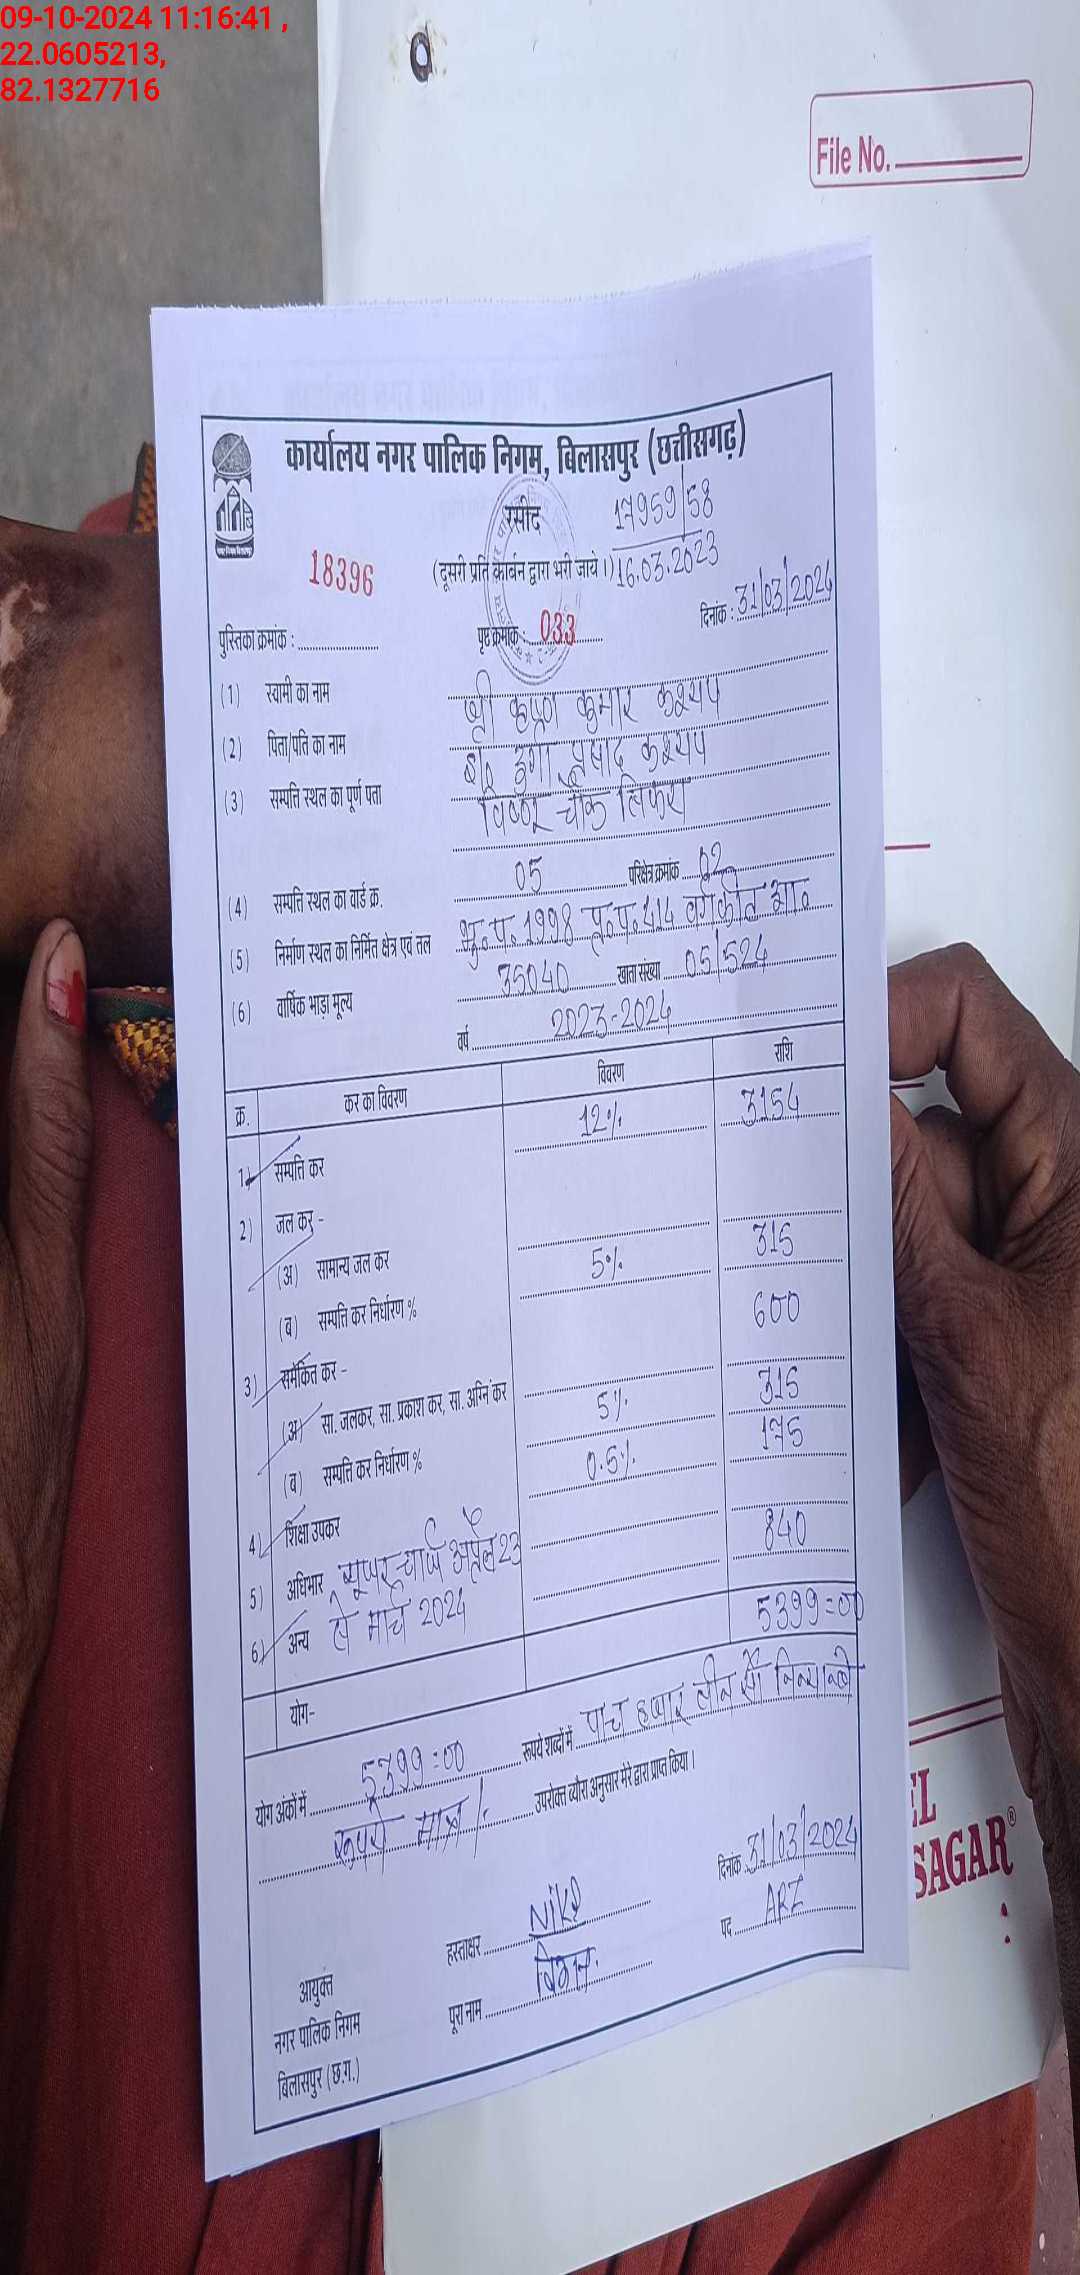 09-10-2024 11:16:41 ,
22.0605213,
82.1327716
File No.
कार्यालय नगर पालिक निगम, बिलासपुर (छत्तीसगढ़)
रसीद 17959/58
18396 (दूसरी प्रति कार्बन द्वारा भरी जाये।) 16.03.2023
पुस्तिका क्रमांक : पृष्ठ क्रमांक : 033 दिनांक : 31/03/2024
(1) स्वामी का नाम श्री कृष्ण कुमार कश्यप
(2) पिता/पति का नाम प्रसाद कश्यप
(3) सम्पत्ति स्थल का पूर्ण पता चौक तिफरा
(4) सम्पत्ति स्थल का वार्ड क्र. 05 परिक्षेत्र क्रमांक 02
(5) निर्माण स्थल का निर्मित क्षेत्र एवं तल भू.प. 1998 414
(6) वार्षिक भाड़ा मूल्य 35040 खाता संख्या 05/524
वर्ष 2023-2024
क्र. कर का विवरण विवरण राशि
1) सम्पत्ति कर 12% 3154
2) जल कर -
(अ) सामान्य जल कर
(ब) सम्पत्ति कर निर्धारण % 5% 315
3) समेकित कर - 600
(अ) सा. जलकर, सा. प्रकाश कर, सा. अग्नि कर
(ब) सम्पत्ति कर निर्धारण % 5% 315
4) शिक्षा उपकर 0.5% 175
5) अधिभार यूजर चार्ज अप्रैल 23
6) अन्य से मार्च 2024 840
योग- 5399=00
योग अंकों में 5399=00 रूपये शब्दों में पांच हजार तीन सौ निन्यानबे
रूपये मात्र/- उपरोक्त ब्यौरा अनुसार मेरे द्वारा प्राप्त किया।
दिनांक 31/03/2024
हस्ताक्षर पद ARI
पूरा नाम
आयुक्त
नगर पालिक निगम
बिलासपुर (छ.ग.)
SAGAR®